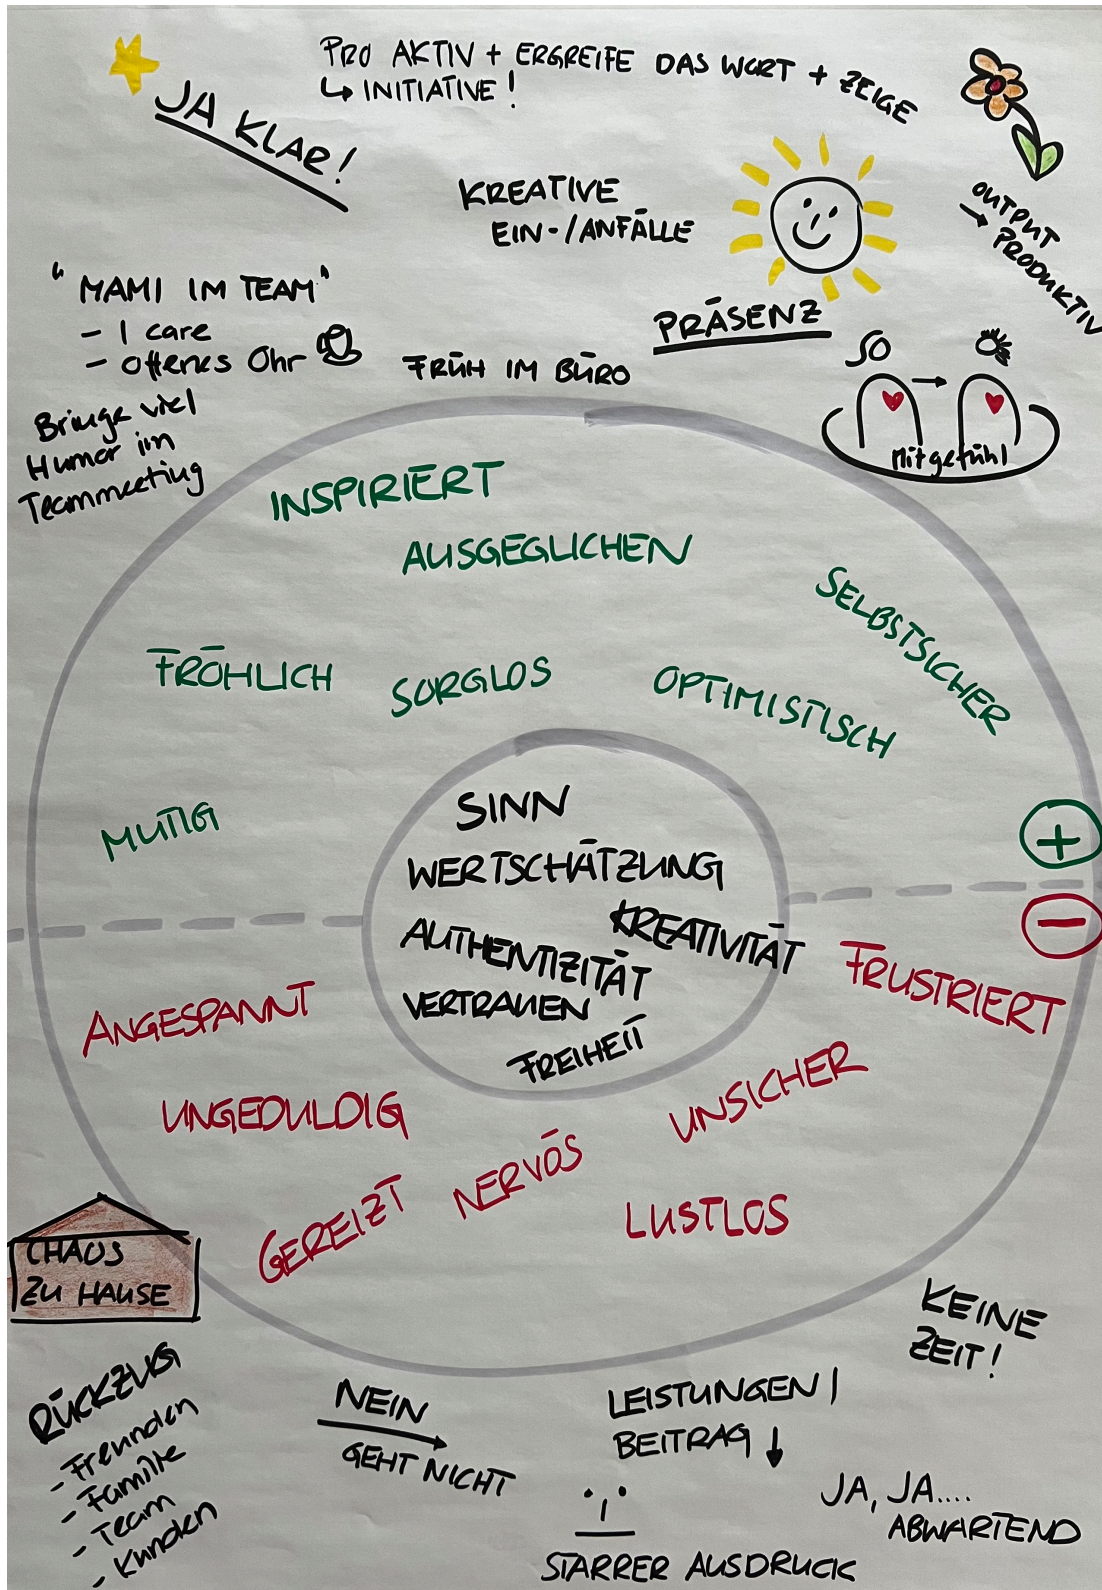 PRO AKTIV + ERGREIFE DAS WORT + ZEIGE
↳ INITIATIVE!
JA KLAR!
KREATIVE
EIN-/ANFÄLLE
OUTPUT
→ PRODUKTIV
"MAMI IM TEAM"
- I care
- offenes Ohr
PRÄSENZ
SO
Mitgefühl
FRÜH IM BÜRO
Bringe viel
Humor im
Teammeeting
INSPIRIERT
AUSGEGLICHEN
SELBSTSICHER
FRÖHLICH
SORGLOS
OPTIMISTISCH
MUTIG
+
SINN
WERTSCHÄTZUNG
KREATIVITÄT
AUTHENTIZITÄT
VERTRAUEN
FREIHEIT
−
FRUSTRIERT
ANGESPANNT
UNGEDULDIG
UNSICHER
NERVÖS
GEREIZT
LUSTLOS
CHAOS
ZU HAUSE
KEINE
ZEIT!
RÜCKZUG
- Freunden
- Familie
- Team
- Kunden
NEIN
GEHT NICHT
LEISTUNGEN/
BEITRAG ↓
JA, JA....
ABWARTEND
STARRER AUSDRUCK